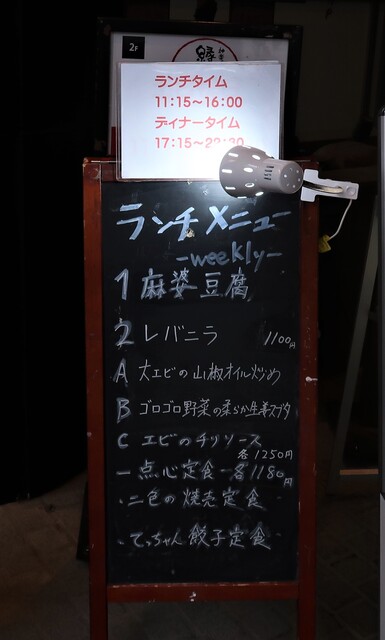 2F
縁
ランチタイム
11:15~16:00
ディナータイム
17:15~22:30
ランチメニュー
-weekly-
1 麻婆豆腐
2 レバニラ 1100円
A 大エビの山椒オイル炒め
B ゴロゴロ野菜の柔らか生姜スブタ
C エビのチリソース
各1250円
-点心定食-各1180円
・二色の焼売定食-
・てっちゃん餃子定食-